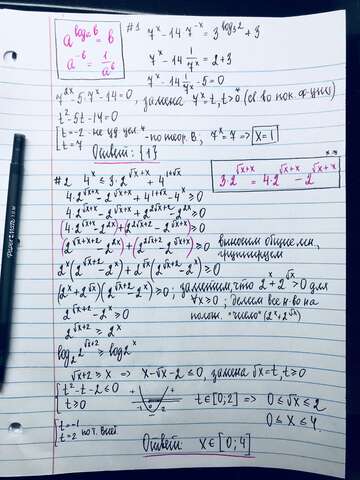 a^{log_a b} = b
a^{-b} = 1/a^b
#1 7^x - 14·7^{-x} = 3^{log_3 2} + 3
7^x - 14 1/7^x = 2+3
7^x - 14 1/7^x - 5 = 0
7^{2x} - 5·7^x - 14 = 0, замена 7^x = t, t>0 (св-во пок. ф-ции)
t² - 5t - 14 = 0
t = -2 - не уд. усл.
t = 7 - по теор. В.; 7^x = 7 => x = 1
Ответ: {1}
#2 4^x ≤ 3·2^{√x+x} + 4^{1+√x}
3·2^{√x+x} = 4·2^{√x+x} - 2^{√x+x}
4·2^{√x+x} - 2^{√x+x} + 4^{1+√x} - 4^x ≥ 0
4·2^{√x+x} - 2^{√x+x} + 2^{2√x+2} - 2^{2x} ≥ 0
(4·2^{√x+x} - 2^{2x}) + (2^{2√x+2} - 2^{√x+x}) ≥ 0
(2^{√x+x+2} - 2^{2x}) + (2^{2√x+2} - 2^{√x+x}) ≥ 0 выносим общие мн.,
группируем
2^x(2^{√x+2} - 2^x) + 2^{√x}(2^{√x+2} - 2^x) ≥ 0
(2^x + 2^{√x})(2^{√x+2} - 2^x) ≥ 0; заметим, что 2^x + 2^{√x} > 0 для
∀x ≥ 0; делим все н-во на
полож. "число" (2^x + 2^{√x})
2^{√x+2} - 2^x ≥ 0
2^{√x+2} ≥ 2^x
log_2 2^{√x+2} ≥ log_2 2^x
√x+2 ≥ x => x - √x - 2 ≤ 0, замена √x = t, t ≥ 0
t² - t - 2 ≤ 0
t ≥ 0
t ∈ [0; 2] => 0 ≤ √x ≤ 2
0 ≤ x ≤ 4
t = -1
t = 2 по т. Виет.
Ответ: x ∈ [0; 4]